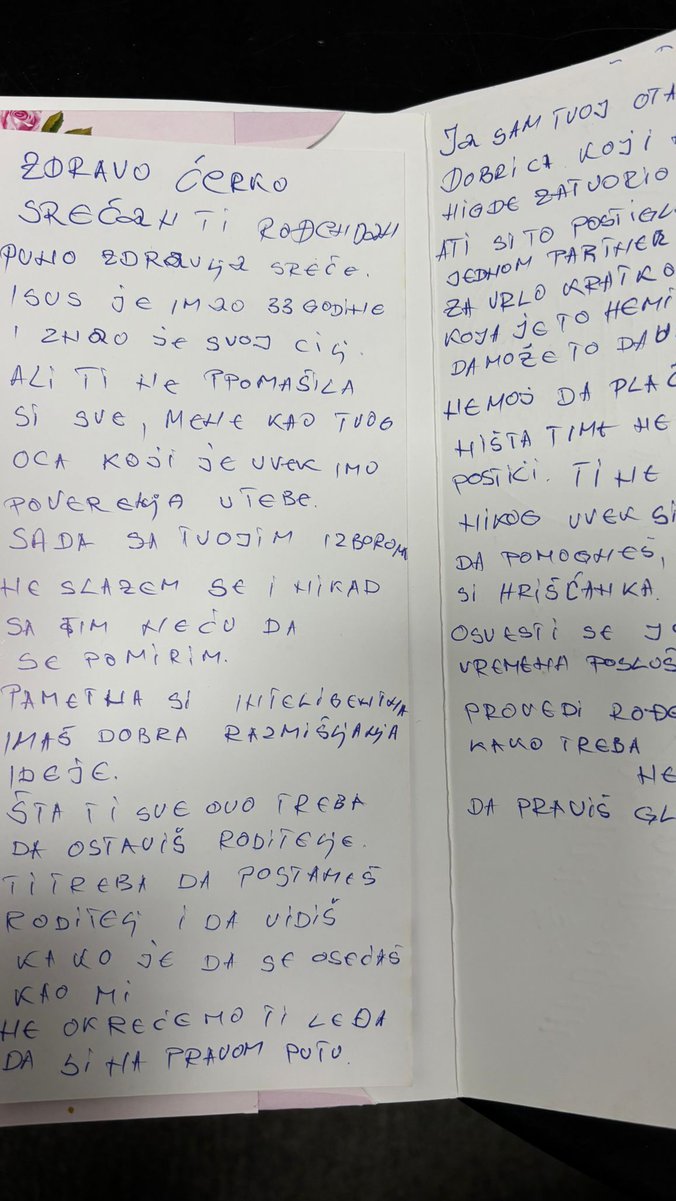 ZDRAVO ĆERKO
SREĆAN TI ROĐENDAN
PUNO ZDRAVLJA SREĆE.
ISUS JE IMAO 33 GODINE
I ZNAO JE SVOJ CILJ.
ALI TI NE PPOMAŠILA
SI SVE, MENE KAO TVOG
OCA KOJI JE UVEK IMO
POVERENJA U TEBE.
SADA SA TVOJIM IZBOROM
NE SLAZEM SE I NIKAD
SA TIM NEĆU DA
SE POMIRIM.
PAMETNA SI INTELIGENTNA
IMAŠ DOBRA RAZMIŠLJANJA
IDEJE.
ŠTA TI SVE OVO TREBA
DA OSTAVIŠ RODITELJE.
TI TREBA DA POSTANEŠ
RODITELJ I DA VIDIŠ
KAKO JE DA SE OSEĆAŠ
KAO MI
NE OKREĆEMO TI LEĐA
DA SI NA PRAVOM PUTU.
JA SAM TVOJ OTA
DOBRICA KOJI
NIGDE ZATVORIO
ATI SI TO POSTIGL
JEDNOM PARTNER
ZA VRLO KRATKO
KOJA JE TO HEMI
DA MOŽE TO DA U
NEMOJ DA PLAČ
NIŠTA TIME NE
POSTIĆI. TI NE
NIKOG UVEK SI
DA POMOGNEŠ,
SI HRIŠĆANKA.
OSVESTI SE
VREMENA POSLUŠ
PROVEDI ROĐE
KAKO TREBA
NE
DA PRAVIŠ GL